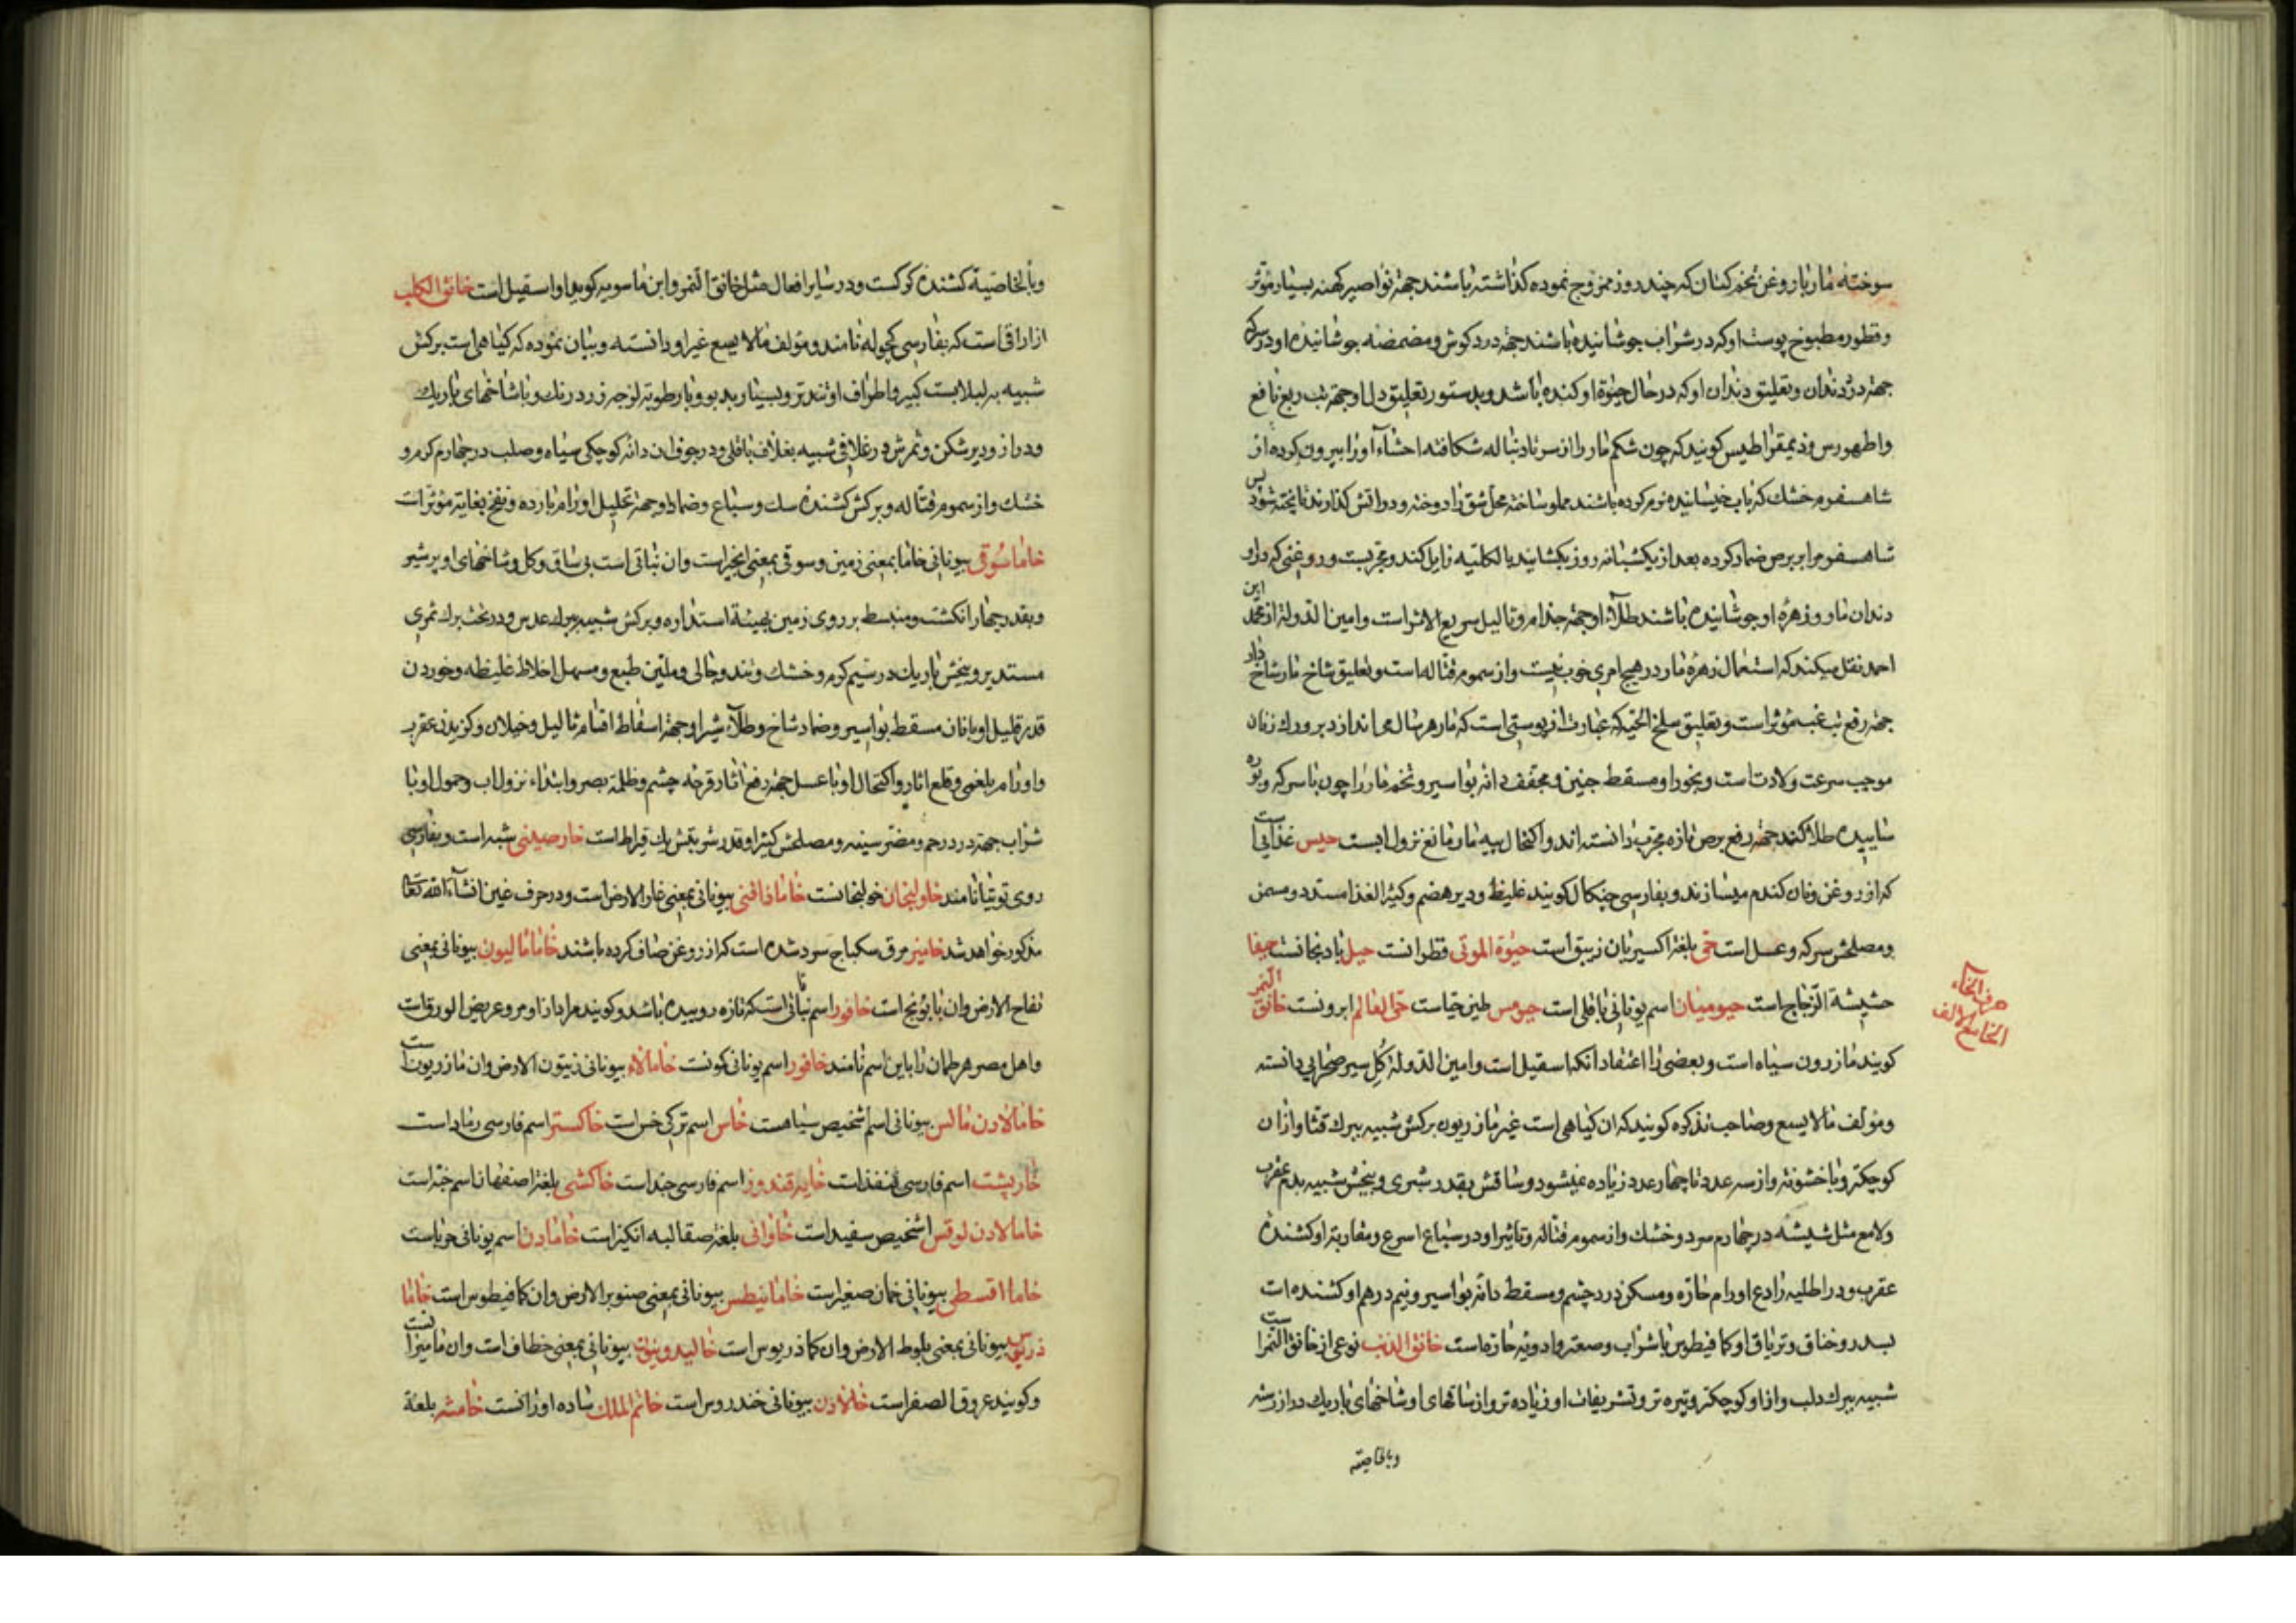 سوخته مار بار وغن تخم کتان که چند روز ممزوج نموده کذاشته باشند جهة نواصیر کهنه بسیار مؤثر
وقطور مطبوخ پوست او که در شراب جوشانیده باشند جهة درد کوش ومضمضه جوشانیده او در سرکه
جهة درد دندان وتعلیق دندان او که در حال حیوة او کنده باشند وبدستور تعلیق دل او جهة تب ربع نافع
واطهورس وذیمقراطیس کویند که چون شکم مار را از سر تا دنباله شکافته احشاء او را بیرون کرده از
شاهسفرم خشک که باب خیسانیده نرم کرده باشند مملو ساخته محل شق را دوخته ودر اتش کذارند تا پخته شود پس
شاهسفرم را بر برص ضماد کرده بعد از یکشبانه روز بکشایند بالکلیه زایل کند ومجربست وروغنی که در او
دندان مار وزهره او جوشانیده باشند طلاء او جهة جذام وثالیل سریع الاثر است وامین الدوله از محمد ابن
احمد نقل میکند که استعمال زهره مار در هیچ امری خوب نیست واز سموم قتاله است وتعلیق شاخ مار شاخ دار
جهة رفع تب غب مؤثر است وتعلیق سلخ الحیه که عبارت از پوستی است که مار هر سال می اندازد بر ورک زنان
موجب سرعت ولادت است وبخور او مسقط جنین ومجفف دانه بواسیر وتخم مار را چون با سرکه وبوره
ساییده طلا کنند جهة رفع برص تازه مجرب دانسته اند واکتحال پیه مار مانع نزول ابست حیس غذایی است
که از روغن ونان کندم میسازند وبفارسی چنکال کویند غلیظ ودیر هضم وکثیر الغذا مسدد ومسمن
ومصلحش سرکه وعسل است حی بلغة اکسیریان زیبق است حیوة الموتی قطرانست حیل بادنجانست حیفا
حشیشة الزجاج است حیومیان اسم یونانی باقلی است حیومس طین حیاست حی العالم ابرونست خانق النمر
حرف الخاء
الخا مع الالف
کویند مازرون سیاه است وبعضی را اعتقاد انکه اسقیل است وامین الدوله کل سیر صحرایی دانسته
ومؤلف مالایسع وصاحب تذکره کویند که ان کیاهی است غیر مازریون برکش شبیه ببرک قثا واز ان
کوچکتر وبا خشونة واز سه عدد تا چهار عدد زیاده نمیشود وساقش بقدر شبری وبیخش شبیه بدم عقرب
ولامع مثل شیشه در چهارم سرد وخشک واز سموم قتاله وتاثیر او در سباع اسرع ومقاربة او کشنده
عقرب ودر اطلیه رادع اورام حاره ومسکن درد چشم ومسقط دانه بواسیر ونیم درهم او کشنده است
بسدر وخناق وتریاق او کمافیطوس با شراب وصعتر وادویه حاره است خانق الذئب نوعی از خانق النمر است
شبیه ببرک دلب واز او کوچکتر وتیره تر وتشریفات او زیاده تر واز ساقهای او شاخهای باریک دراز رسته
وبالخاصیة
وبالخاصیة کشنده کرکست ودر سایر افعال مثل خانق النمر وابن ماسویه کوید او اسقیل است خانق الکلب
ازاراقی است که بفارسی کچوله نامند ومؤلف مالایسع غیر او دانسته وبیان نموده که کیاهی است برکش
شبیه به لبلاب کبیر واطراف او تند تر وبسیار بدبو وبا رطوبة لزجه زرد رنک وبا شاخهای باریک
ودراز ودیر شکن وثمرش در غلافی شبیه بغلاف باقلی ودر جوف ان دانه کوچکی سیاه وصلب در چهارم کرم و
خشک واز سموم قتاله وبرکش کشنده سک وسباع وضماد او جهة تحلیل اورام بارده ونفخ بغایة مؤثر است
خاماسوقی بیونانی خاما بمعنی زمین وسوقی بمعنی انجیر است وان نباتی است بی ساق وکل وشاخهای او پر شیر
وبقدر چهار انکشت ومنبسط بر روی زمین بهیئة استداره وبرکش شبیه ببرک عدس ودر تحت برک ثمری
مستدیر وبیخش باریک در سیم کرم وخشک وتند وجالی وملین طبع ومسهل اخلاط غلیظه وخوردن
قدر قلیل او با نان مسقط بواسیر وضماد شاخ وطلاء شیر او جهة اسقاط اقسام ثالیل وخیلان وکزیدن عقرب
واورام بلغمی وقلع اثار واکتحال او با عسل جهة رفع اثار قرحه چشم وظلمة بصر وابتداء نزول اب وحمول او با
شراب جهة درد رحم ومضر سینه ومصلحش کثیرا وقدر شربتش یک قیراط است خارصینی شبه است وبفارسی
روی توتیا نامند خاولنجان خولنجانست خامادافنی بیونانی بمعنی غار الارض است ودر حرف غین انشاء الله تعالی
مذکور خواهد شد خامیز مرق سکباج سرد شده است که از روغن صاف کرده باشند خامامالیون بیونانی بمعنی
تفاح الارض وان بابونج است خافور اسم نباتی است که تازه روییده باشد وکویند مراد از او مرو عریض الورق است
واهل مصر هرطمان را باین اسم نامند خافور اسم یونانی کونست خامالاء بیونانی زیتون الارض وان مازریون است
خامالادن مالس بیونانی اسم اشخیص سیاهست خاس اسم ترکی خس است خاکستر اسم فارسی رماد است
خارپشت اسم فارسی قنفذ است خایه قندوز اسم فارسی جند است خاکشی بلغة اصفهان اسم خبه است
خامالادن لوقس اشخیص سفید است خاوانی بلغة صقالبه انکیز است خامادن اسم یونانی حرباست
خامااقسطی بیونانی خمان صغیر است خامانیطس بیونانی بمعنی صنوبر الارض وان کمافیطوس است خاما
ذریوس بیونانی بمعنی بلوط الارض وان کماذریوس است خالیدونیون بیونانی بمعنی خطاف است وان مامیرانست
وکویند عروق الصفر است خالادن بیونانی خندروس است خاتم الملک ساده اورانست خامشه بلغة